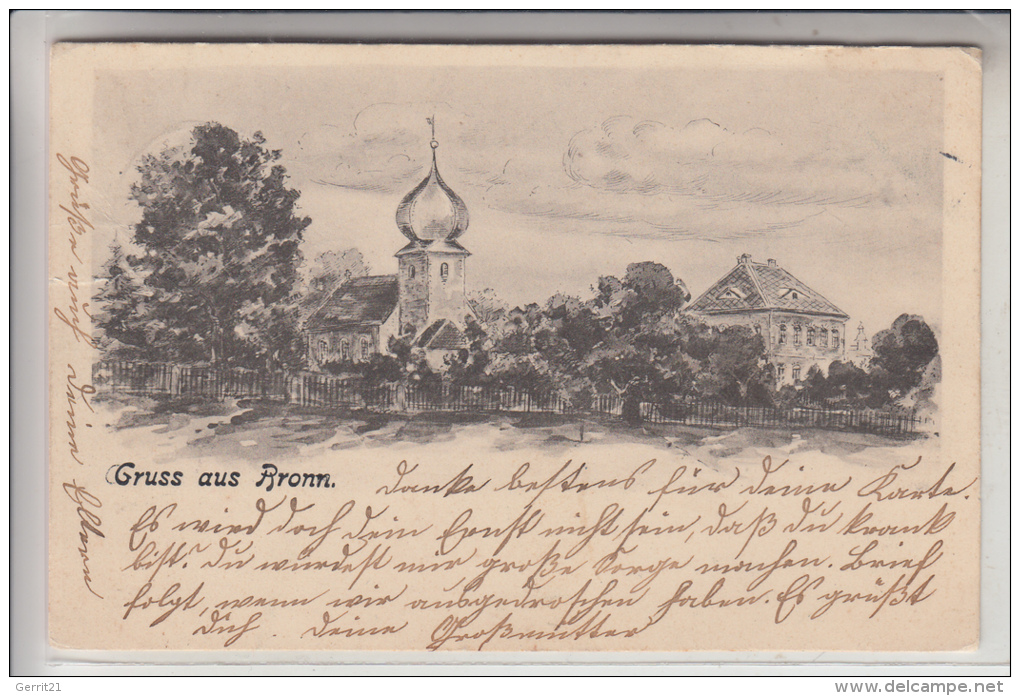 Gruss aus Bronn.
Danke bestens für deine Karte.
Es wird doch dein Ernst nicht sein, daß du krank
bist? Du würdest mir große Sorge machen. Brief
folgt, wenn wir ausgedroschen haben. Es grüßt
Dich deine Großmutter
Grüße auf deine Eltern
Gerrit21
www.delcampe.net